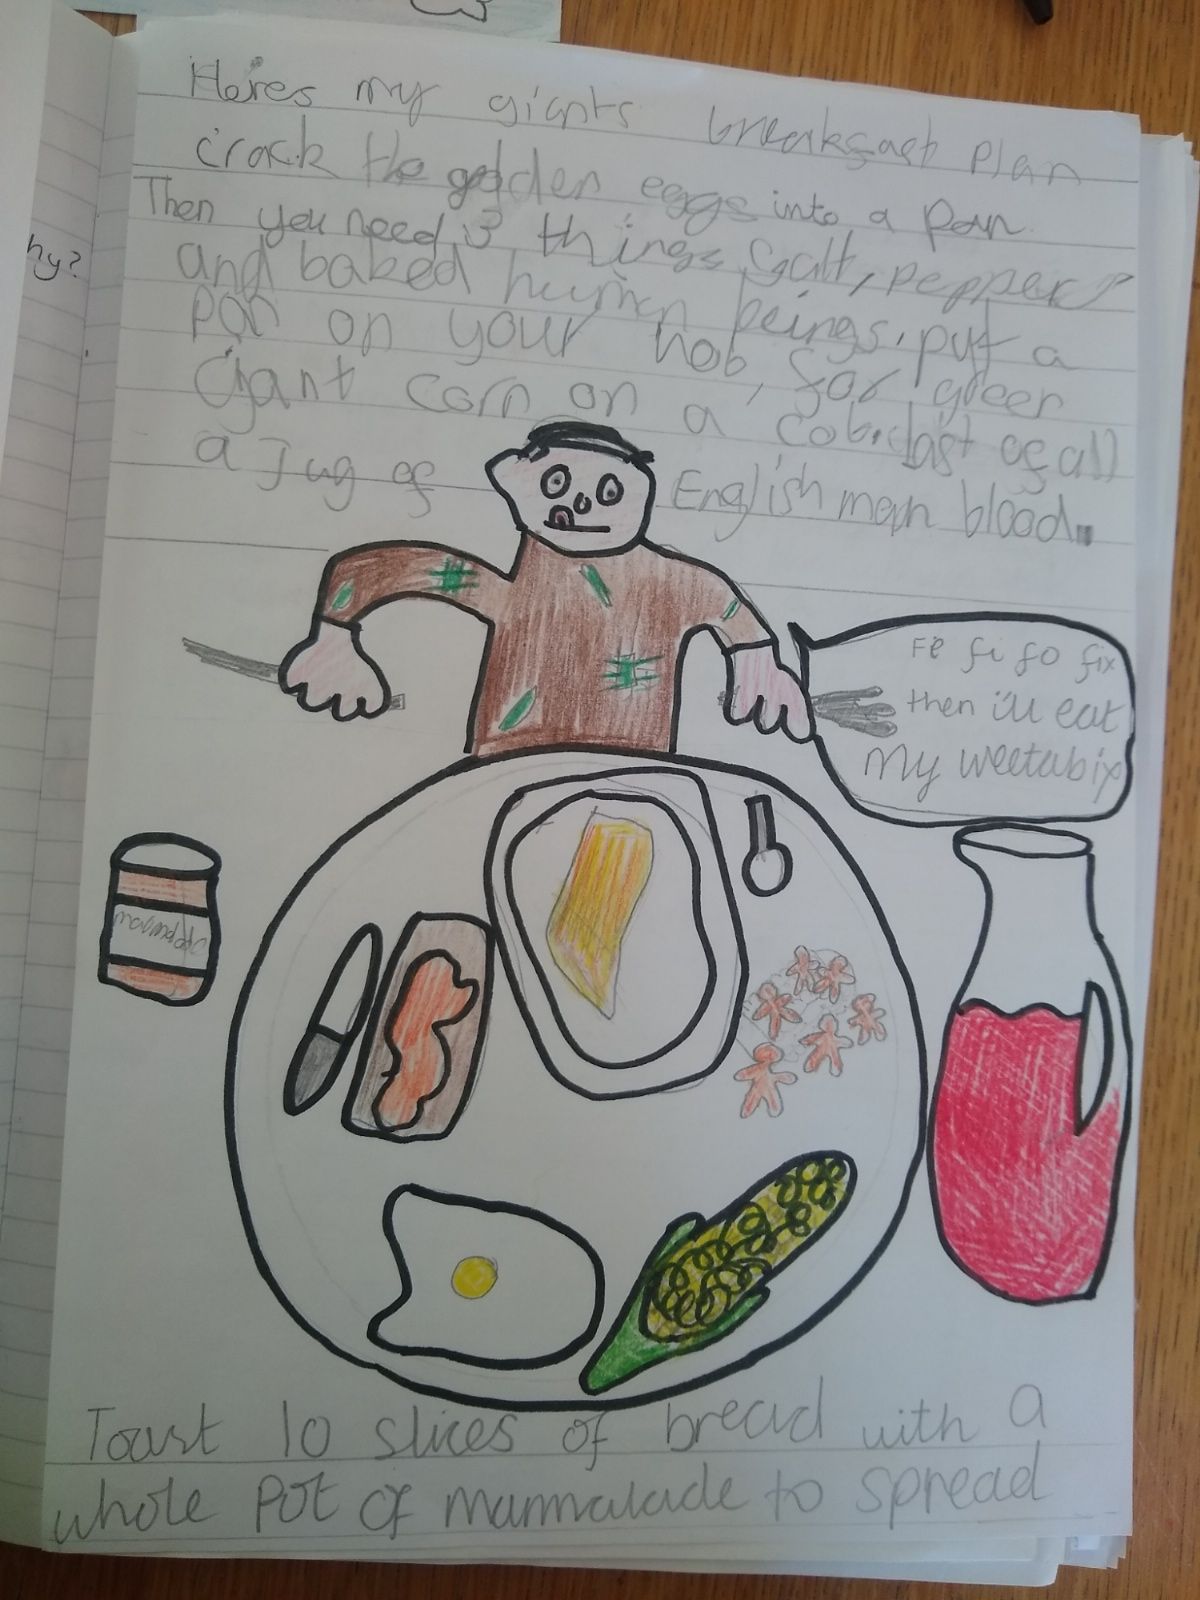 Heres my giants breakfast plan
crack the golden eggs into a pan.
Then you need 3 things, Salt, pepper
and baked human beings. put a
pan on your hob, for green
Giant corn on a cob. last of all
a Jug of English man blood.
Fe fi fo fix
then i'll eat
my weetabix
hy?
Toast 10 slices of bread with a
whole pot of marmalade to spread